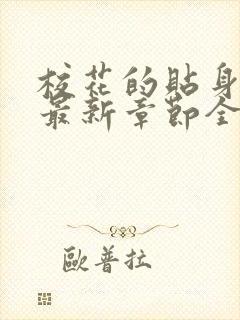 校花的貼身
最新章節全
歐普拉